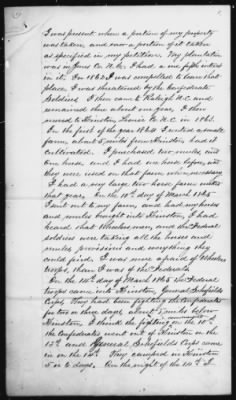 I was present when a portion of my property
was taken, and now a portion of it taken
as specified in my petition. My plantation
was in Jones Co. N.C. I had a one fifth interest
in it. In 1862 I was compelled to leave that
place. I was threatened by the Confederate
Soldiers. I then came to Raleigh N.C. and
remained there about one year, I then
moved to Kinston, Lenoir Co. N.C. in 1863.
In the first of the year 1864 I rented a small
farm, about 5 miles from Kinston, had it
cultivated. I purchased two mules and
one horse and I had one horse before, and
they were used on that farm when necessary.
I had a very large two horse farm under
that year. On the 10th day of March 1865
I sent out to my farm, and had my horses
and mules brought into Kinston, I had
heard that Wheelers men, and the Federal
soldiers were taking all the horses and
mules provisions and everything they
could find. I was more afraid of Wheelers
Corps, than I was of the Federals.
On the 14th day of March 1865 the Federal
troops came into Kinston, General Schofields
Corps, They had been fighting the Confederates
for two or three days, about 5 miles below
Kinston, I think the fighting on the 10th
the Confederates went out of Kinston on the
13th and General Schofields Corps came
in on the 14th. They camped in Kinston
5 or 6 days. On the night of the 14th I